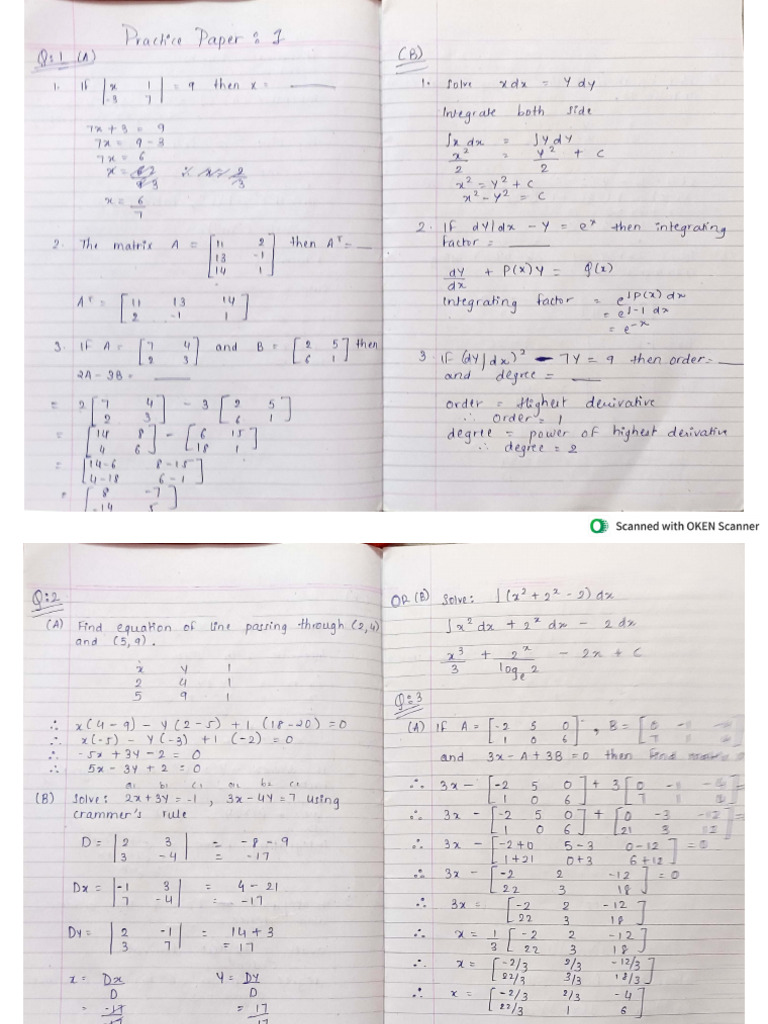 Practice Paper : 1
Q:1 (A)
1. If |x 1| = 9 then x = ____
|-3 7|
7x + 3 = 9
7x = 9 - 3
7x = 6
x = 6
7
2. The matrix A = [11 2] then Aᵀ = __
[13 -1]
[14 1]
Aᵀ = [11 13 14]
[2 -1 1]
3. If A = [7 4] and B = [2 5] then
[2 3] [6 1]
2A - 3B = ____
= 2 [7 4] - 3 [2 5]
[2 3] [6 1]
= [14 8] - [6 15]
[4 6] [18 1]
= [14-6 8-15]
[4-18 6-1]
= [8 -7]
[-14 5]
(B)
1. Solve x dx = y dy
Integrate both side
∫x dx = ∫y dy
x² = y² + c
2 2
x² = y² + c
x² - y² = c
2. If dy/dx - y = eˣ then integrating
factor = ____
dy + P(x)y = Q(x)
dx
Integrating factor = e^∫P(x) dx
= e^∫-1 dx
= e^-x
3. If (dy/dx)² - 7y = 9 then order = __
and degree = __
order = Highest derivative
∴ order = 1
degree = power of highest derivative
∴ degree = 2
Scanned with OKEN Scanner
Q:2
(A) Find equation of line passing through (2,4)
and (5,9).
x y 1
2 4 1
5 9 1
∴ x(4-9) - y(2-5) + 1(18-20) = 0
∴ x(-5) - y(-3) + 1(-2) = 0
∴ -5x + 3y - 2 = 0
∴ 5x - 3y + 2 = 0
a₁ b₁ c₁ a₂ b₂ c₂
(B) Solve: 2x+3y = -1, 3x-4y = 7 using
crammer's rule
D = |2 3| = -8 - 9
|3 -4| = -17
Dx = |-1 3| = 4 - 21
|7 -4| = -17
Dy = |2 -1| = 14 + 3
|3 7| = 17
x = Dx y = Dy
D D
= -17 = 17
-17
OR (B) Solve: ∫(x² + 2ˣ - 2) dx
∫x² dx + 2ˣ dx - 2 dx
x³ + 2ˣ - 2x + c
3 logₑ2
Q:3
(A) If A = [-2 5 0], B = [0 -1
[1 0 6] [7 1
and 3x - A + 3B = 0 then find
∴ 3x - [-2 5 0] + 3 [0 -1 =
[1 0 6] [7 1
∴ 3x - [-2 5 0] + [0 -3 -12] =
[1 0 6] [21 3 12]
∴ 3x - [-2+0 5-3 0-12] = 0
[1+21 0+3 6+12]
∴ 3x - [-2 2 -12] = 0
[22 3 18]
∴ 3x = [-2 2 -12]
[22 3 18]
∴ x = 1 [-2 2 -12]
3 [22 3 18]
∴ x = [-2/3 2/3 -12/3]
[22/3 3/3 18/3]
∴ x = [-2/3 2/3 -4]
[22/3 1 6]